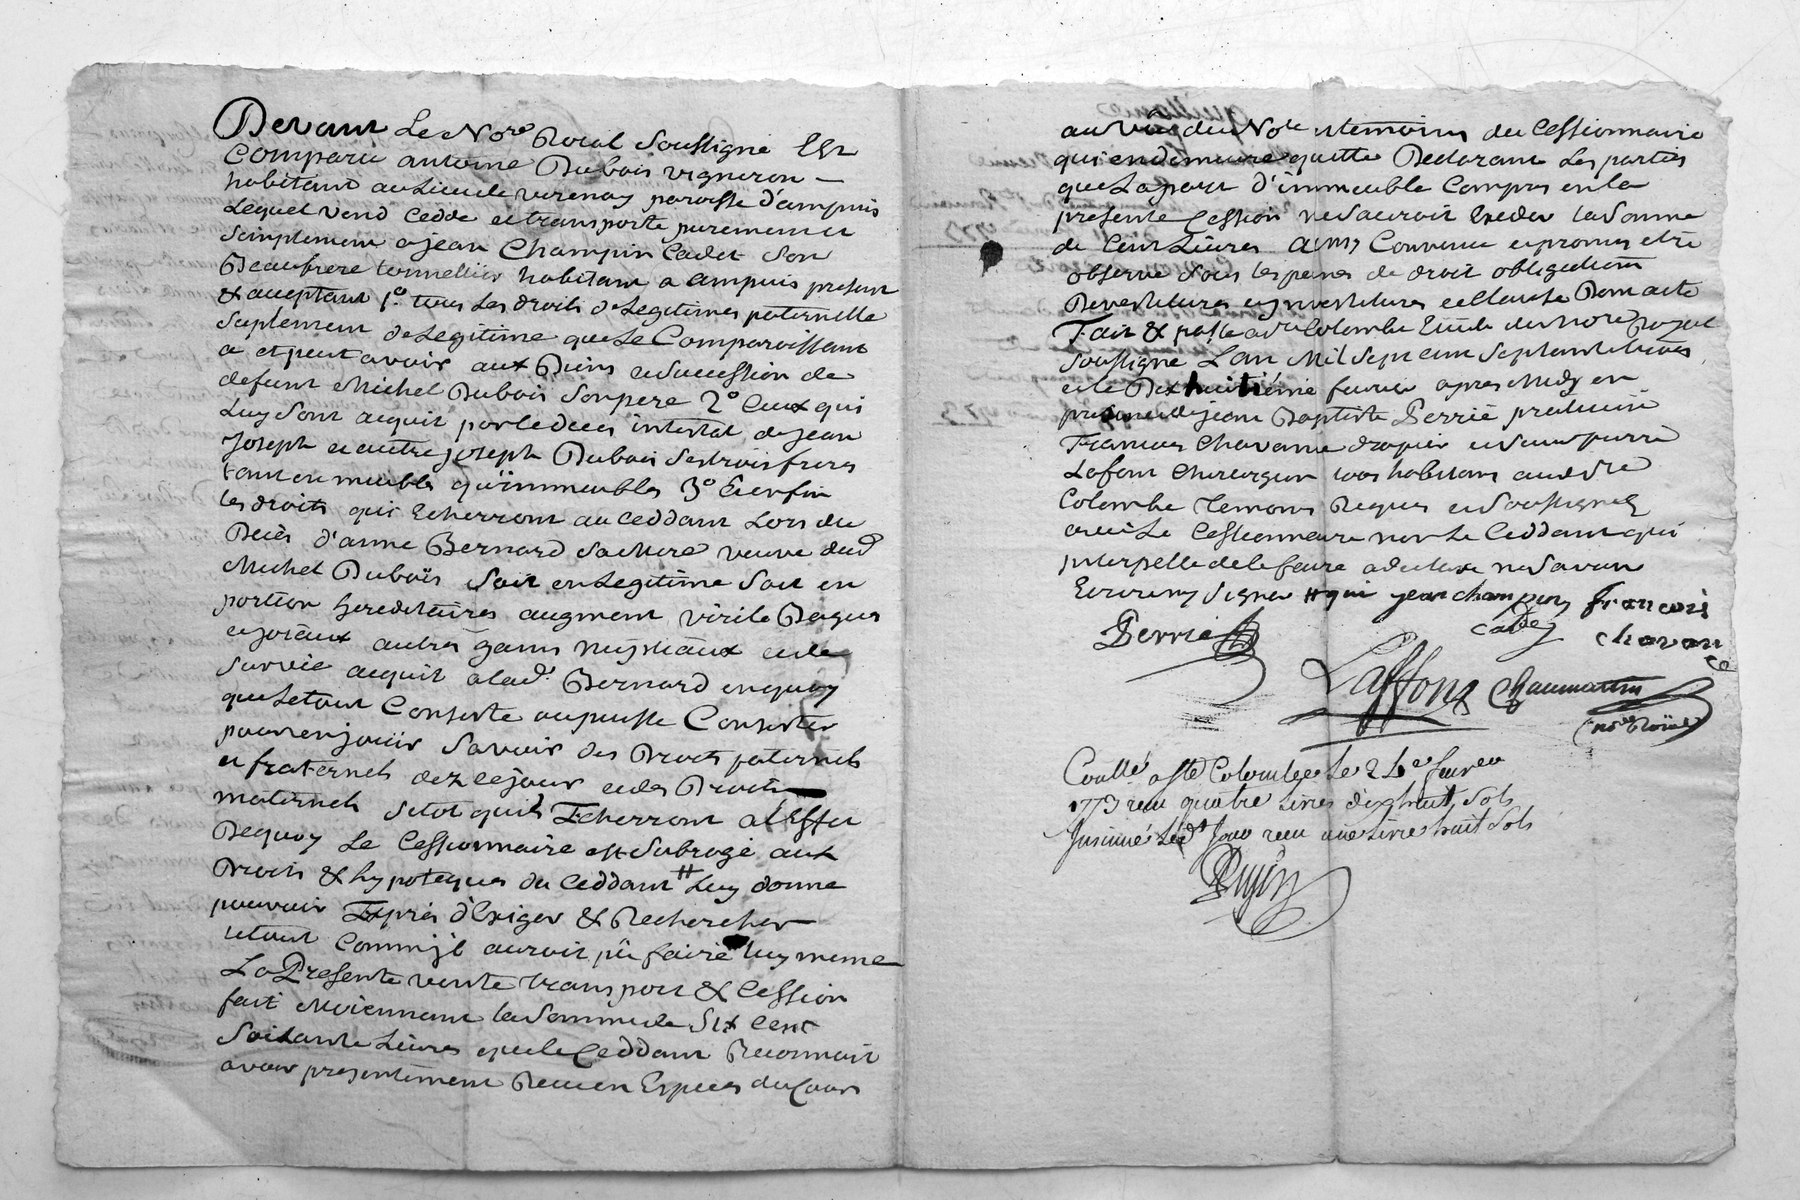 Devant Le No.re Roial Soussigné Est
Comparu antoine Dubois vigneron –
habitant au Lieu de verenay paroisse d'ampuis
Lequel vend Cedde et transporte purement et
Simplement a jean Champin Cadet Son
Beaufrere tonnellier habitant a ampuis present
& acceptant 1.° tous Les droits de Legitimes paternelle
Suplement de Legitime que Le Comparoissant
a et peut avoir aux Biens et Succession de
defunt Michel Dubois Son pere 2° Ceux qui
Luy Sont acquit par le deces intestat de jean
Joseph et autre joseph Dubois Ses trois freres
tant en meubles qu'immeubles 3° Et enfin
les droits qui Echerront au Ceddant Lors du
Decès d'anne Bernard Sa Mere veuve dud
Michel Dubois Soit en Legitime Soit en
portion hereditaires augment virile Bagues
et joïeaux autres gains nuptiaux et de
Survie acquit a lad. Bernard en quoy
que Le tout Consiste ou puisse Consister
pour en jouir Savoir des Droits paternels
et fraternels dez ce jour et des Droits
maternels Sitot qu'ils Echerront a L'Effet
Dequoy Le Cessionnaire est Subrogé aux
Droits & hypoteques du Ceddant # Luy donne
pouvoir Exprès d'Exiger & Rechercher
le tout Comm'jl auroit pû faire luy meme
La Presente vente transport & Cession
fait Moiennant la Somme de Six Cent
Soixante Livres que le Ceddant Reconnait
avoir presentement Recu en Especes du Cours
au vû du No.re et temoins du Cessionnaire
qui en demeure quitte Declarant Les parties
que La part d'immeuble Compris en la
presente Cession ne Sauroit Exeder la Somme
de Cent Livres Ainsy Convenu et promis etre
observé Sous les peines de droit obligations
Devestitures et jnvestitures et Clauses Dont acte
Fait & passé a S.te Colombe Etude du No.re Royal
Soussigné L'an Mil Sept Cent Septante trois
et le Dix huitiéme fevrier apres Midy en
presence de jean Baptiste Perrié praticien
Francois Chavanne drapier et Sieur pierre
Lafont Chirurgien tous habitans aud S.te
Colombe temoins Requis et Soussignes
avec Le Cessionnaire non Le Ceddant qui
jnterpellé de le faire a declaré ne Savoir
Ecrire ny Signer # qui jean champin francois
Perrié cadet chavane
Laffont Chaumartin
(no.re Roïal)
Conllé a S.te Colombe le 2 fevrier
1773 recu quatre Livres dix huit Sols
Jnsinué Led. Jour recu une Livre huit Sols